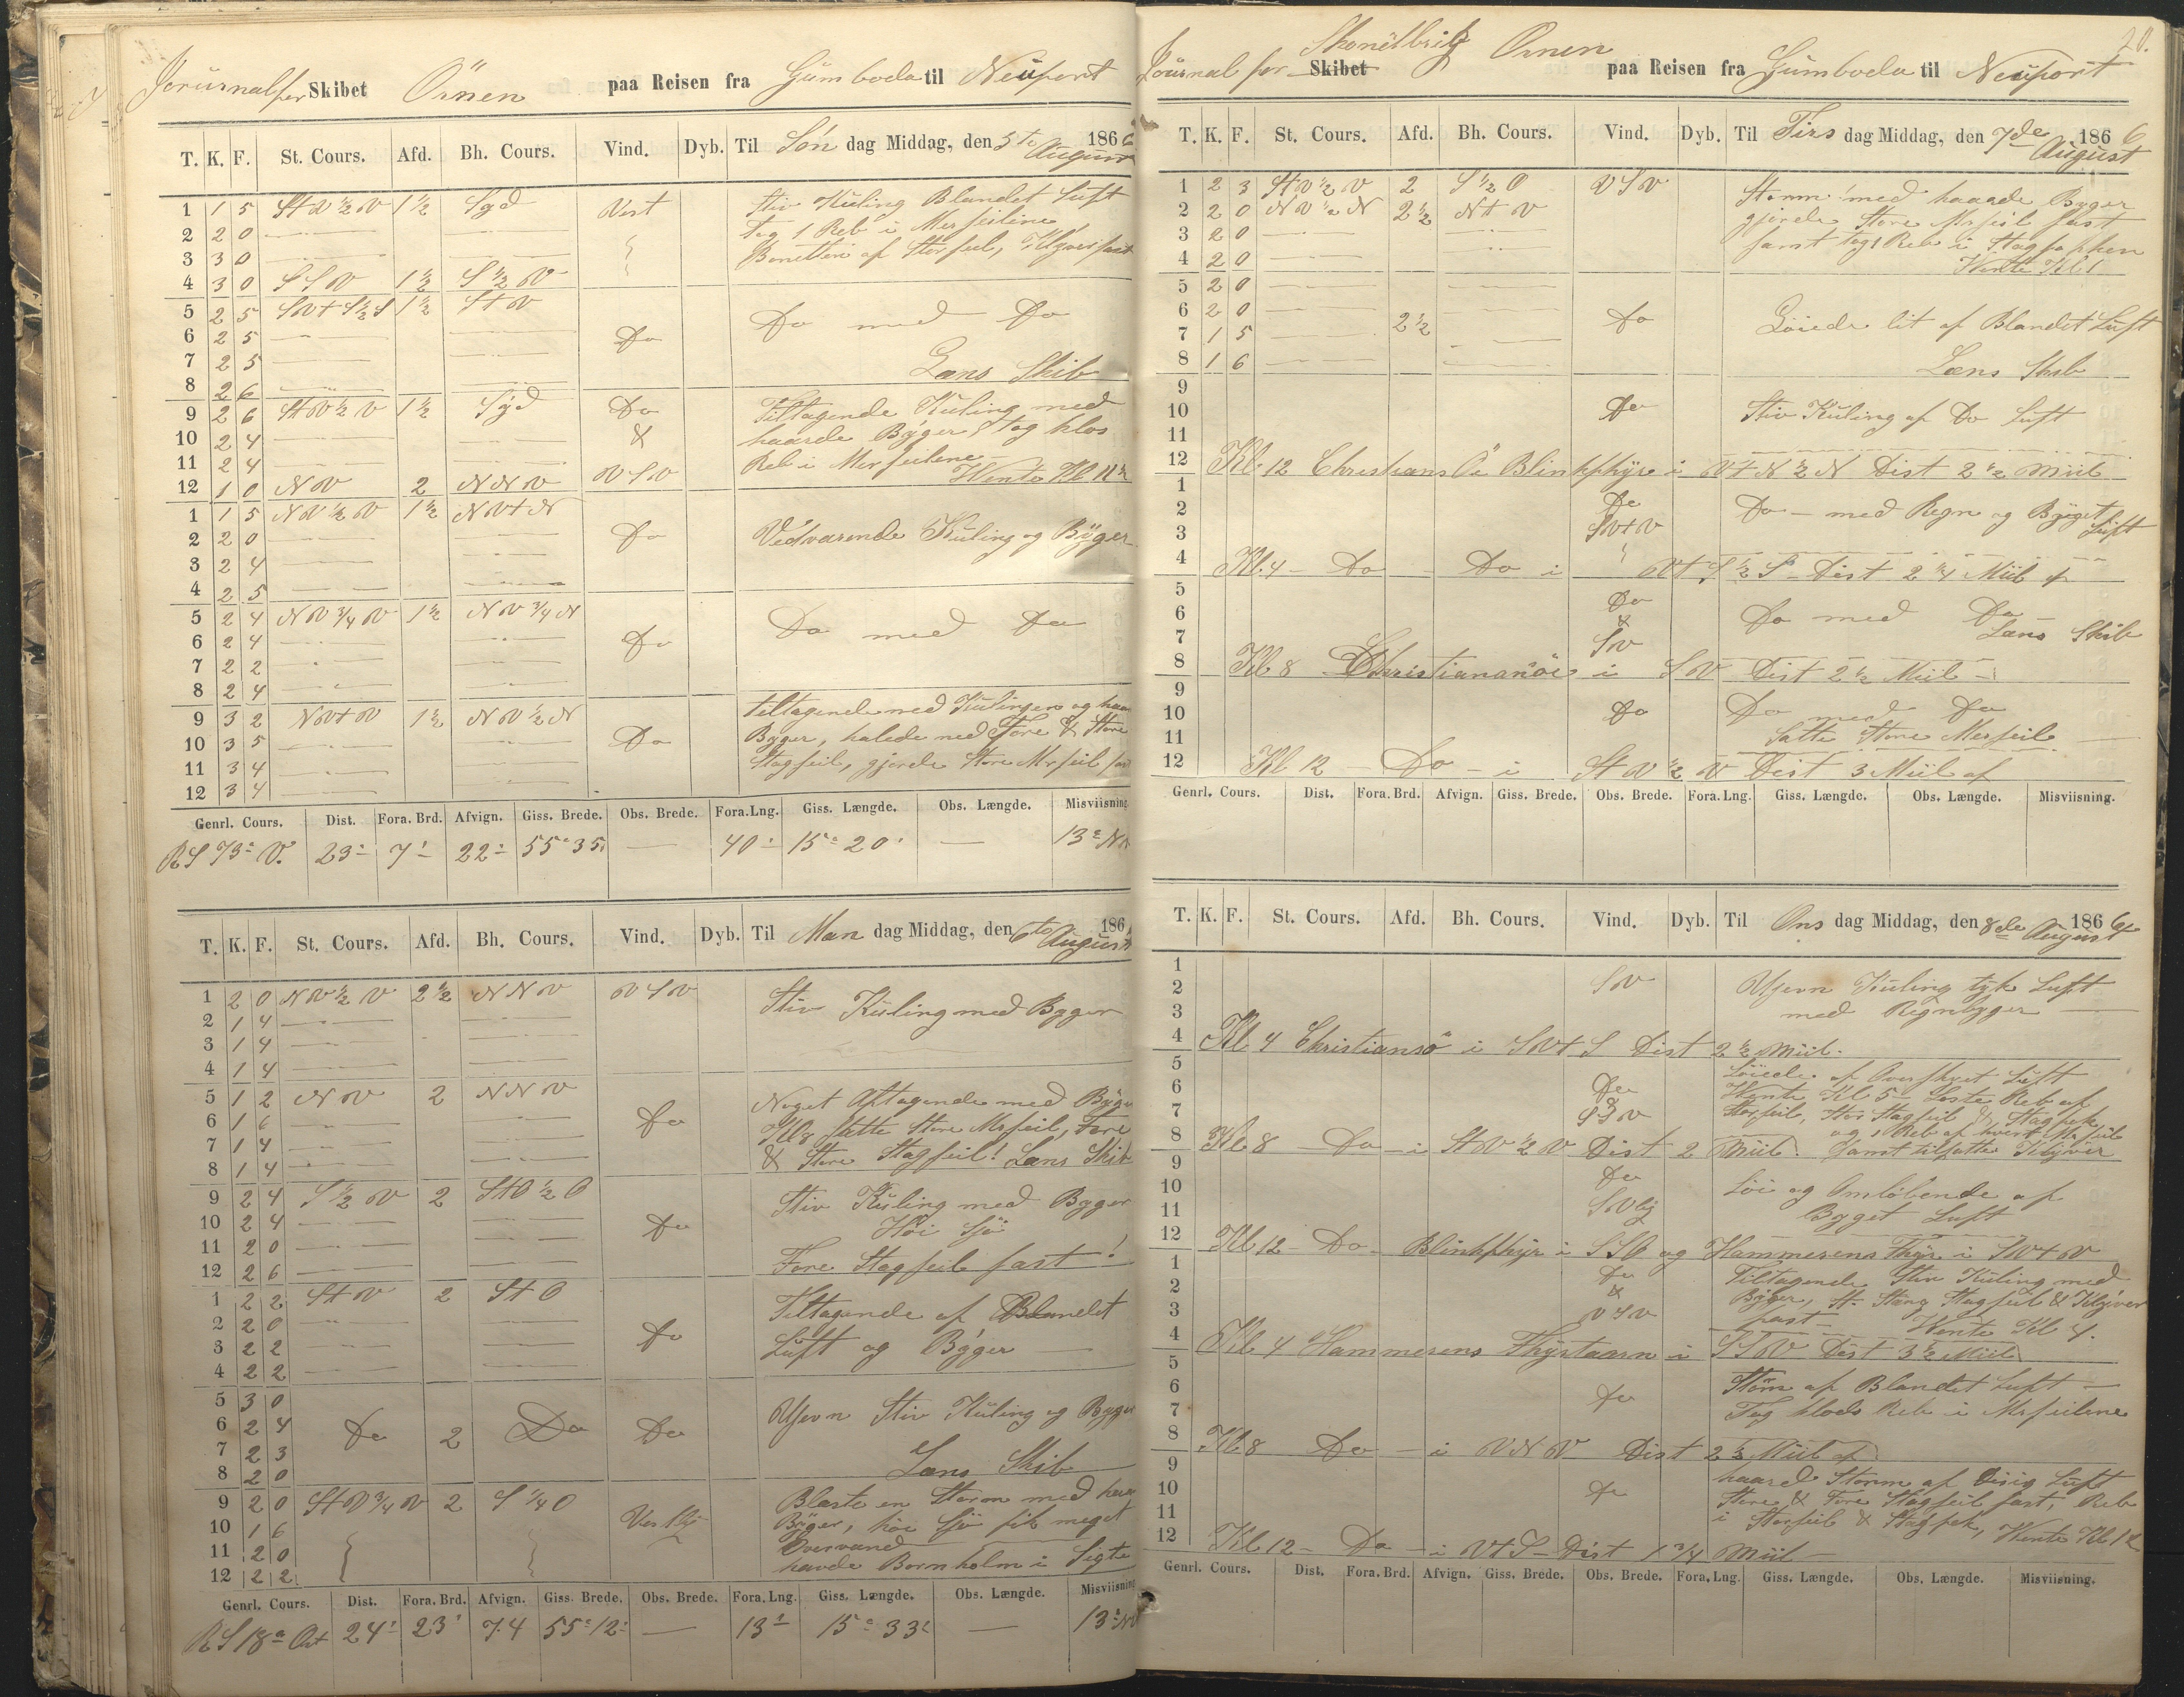 Journal for Skibet Örnen paa Reisen fra Gumboda til Neuport
T. K. F. St. Cours. Afd. Bh. Cours. Vind. Dyb. Til Søn dag Middag, den 5te August 1866
1 1 5 StV½V 1½ Syd Vest Stiv Kuling Blandet Luft
2 2 0 tog 1 Reb i Merseilene
3 3 0 Bonetten af Storseil, Klyver fast
4 3 0 SSV 1½ S½V
5 2 5 1½ StV Do med Do
6 2 5 Do
7 2 5 Læns Skib
8 2 6
9 2 6 StV½V 1½ Syd Do Tiltagende Kuling med
10 2 4 & haarde Byger, tog klos
11 2 4 VSV Reb i Merseilene
12 1 0 NV 2 NNV Vente Kl 11½
1 1 5 NV½V 1½ NVtN
2 2 0 Do Vedvarende Kuling og Byger
3 2 4
4 2 5
5 2 4 NV¾V 1½ NV¾N Do med Do
6 2 4 Do
7 2 2
8 2 4
9 3 2 NVtV 1½ NV½N tiltagende med Kulingen og
10 3 5 Do Byger, halede ned Fore & Store
11 3 4 Stagseil, gjorde Store Mrseil
12 3 4
Genrl. Cours. Dist. Fora. Brd. Afvign. Giss. Brede. Obs. Brede. Fora. Lng. Giss. Længde. Obs. Længde. Misviisning.
RS 73° V. 23 7 22 55° 35 — 40 15° 20 — 13°
T. K. F. St. Cours. Afd. Bh. Cours. Vind. Dyb. Til Man dag Middag, den 6te August 186
1 2 0 NV½V 2½ NNV VSV Stiv Kuling med Byger
2 1 4
3 1 4
4 1 4
5 1 2 NV 2 NNV Noget Aftagende med Byger
6 1 6 Do Kl 8 satte Store Mrseil, Fore
7 1 4 & Store Stagseil! Læns Skib
8 1 4
9 2 4 S½V 2 StO½O Stiv Kuling med Byger
10 2 4 Do Høi Sjö
11 2 0
12 2 6 Fore Stagseil fast!
1 2 2 StV 2 StO Tiltagende af Blandet
2 2 0 Do
3 2 2 Luft og Byger
4 2 2
5 3 0 Ujevn Stiv Kuling og Byger
6 2 4 Do 2 Do Do
7 2 3
8 2 0 Læns Skib
9 2 0 StV¾V 2 S¼O Blæste en Storm med
10 1 6 Byger, höi Sjö fik meget
11 2 0 Overvand
12 2 2 havde Bornholm i Sigte
Genrl. Cours. Dist. Fora. Brd. Afvign. Giss. Brede. Obs. Brede. Fora. Lng. Giss. Længde. Obs. Længde. Misviisning
RS 18° Ost 24 23 7.4 55° 12 — 13 15° 33 — 13°
20.
Journal for Skonertbrig Skibet Örnen paa Reisen fra Gumboda til Neuport
T. K. F. St. Cours. Afd. Bh. Cours. Vind. Dyb. Til Tirs dag Middag, den 7de August 1866
1 2 3 StV½V 2 S½O VSV Storm med haarde Byger
2 2 0 NV½N 2½ NtV gjorde Store Mrseil fast
3 2 0 samt tog 1 Reb i Stagfokken
4 2 0 Vente Kl 1
5 2 0
6 2 0 Do Löiede lit af Blandet Luft
7 1 5 2½
8 1 6 Læns Skib
9
10 Do Stiv Kuling af Do Luft
11
12 Kl 12 Christians Öi Blinkfyr i VtN½N Dist 2½ Miil
1
2 Do Do — med Regn og Byget
3 SVtV Luft
4 Kl. 4 — Do — Do i VtS½S Dist 2¼ Miil
5
6 Do Do med Do
7 & SV Læns Skib
8 Kl 8 Christiansöe i SV Dist 2½ Miil
9
10 Do Do med Do
11 Satte Store Merseil
12 Kl 12 — Do — i StV½V Dist 3 Miil af
Genrl. Cours. Dist. Fora. Brd. Afvign. Giss. Brede. Obs. Brede. Fora. Lng. Giss. Længde. Obs. Længde. Misviisning.
T. K. F. St. Cours. Afd. Bh. Cours. Vind. Dyb. Til Ons dag Middag, den 8de August 1866
1
2 SV Ujevn Kuling tyk Luft
3 med Regnbyger
4 Kl 4 Christiansö i SVtS Dist 2½ Miil.
5 Löiede af Overskyet Luft
6 Do Vente Kl 5 Loste Reb af
7 & SSV Storseil, Stor Stagseil & Stagfok
og 1 Reb af hvert Mrseil
8 Kl 8 — Do — i StV½V Dist 2 Miil. Samt tilsatte Klyver
9
10 Do Löi og Omlöbende af
11 SVlig Byget Luft
12 Kl 12 — Do — Blinkfyr i og Hammerens Fyr i SVtV
1 Do Tiltagende Stiv Kuling med
2 & Byger, Stagseil & Klyver
3 VSV fast — Vente Kl 4.
4 Kl 4 Hammerens Fyrtaarn i SSV Dist 3½ Miil
5
6 Do Storm af Blandet Luft
7 Tog klods Reb i Mrseilene
8 Kl 8 Do — i VNV Dist 2½ Miil af
9 haard Storm af Disig Luft
10 Do Store & Fore Stagseil fast, Reb
11 i Storseil & Stagfok, Vente Kl 12
12 Kl 12 — Do — i VtS — Dist 1¾ Miil
Genrl. Cours. Dist. Fora. Brd. Afvign. Giss. Brede. Obs. Brede. Fora. Lng. Giss. Længde. Obs. Længde. Misviisning.